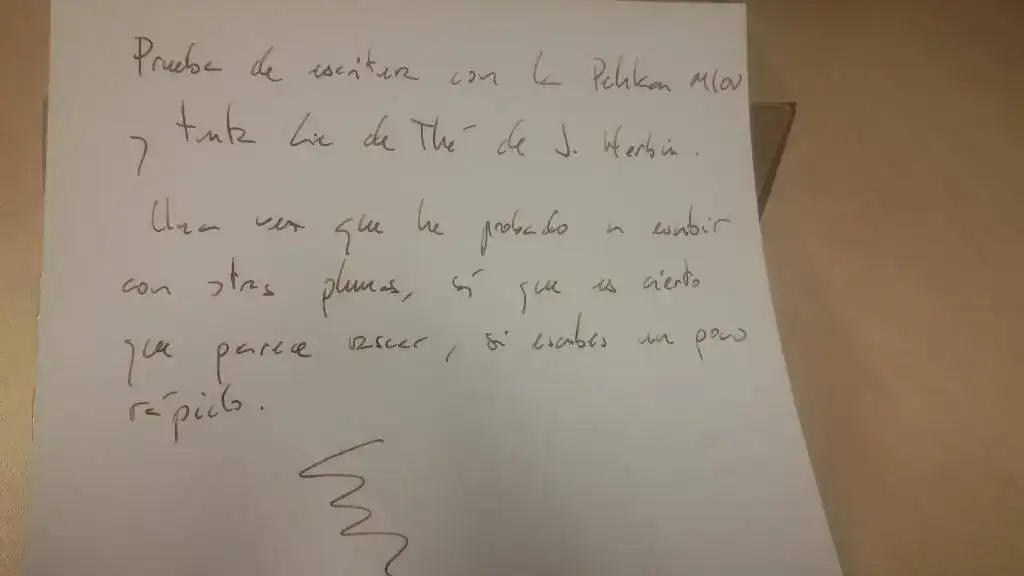 Prueba de escritura con la Pelikan M100
y tinta Lie de Thé de J. Herbin.
Una vez que he probado a escribir
con otras plumas, sí que es cierto
que parece rascar, si escribes un poco
rápido.